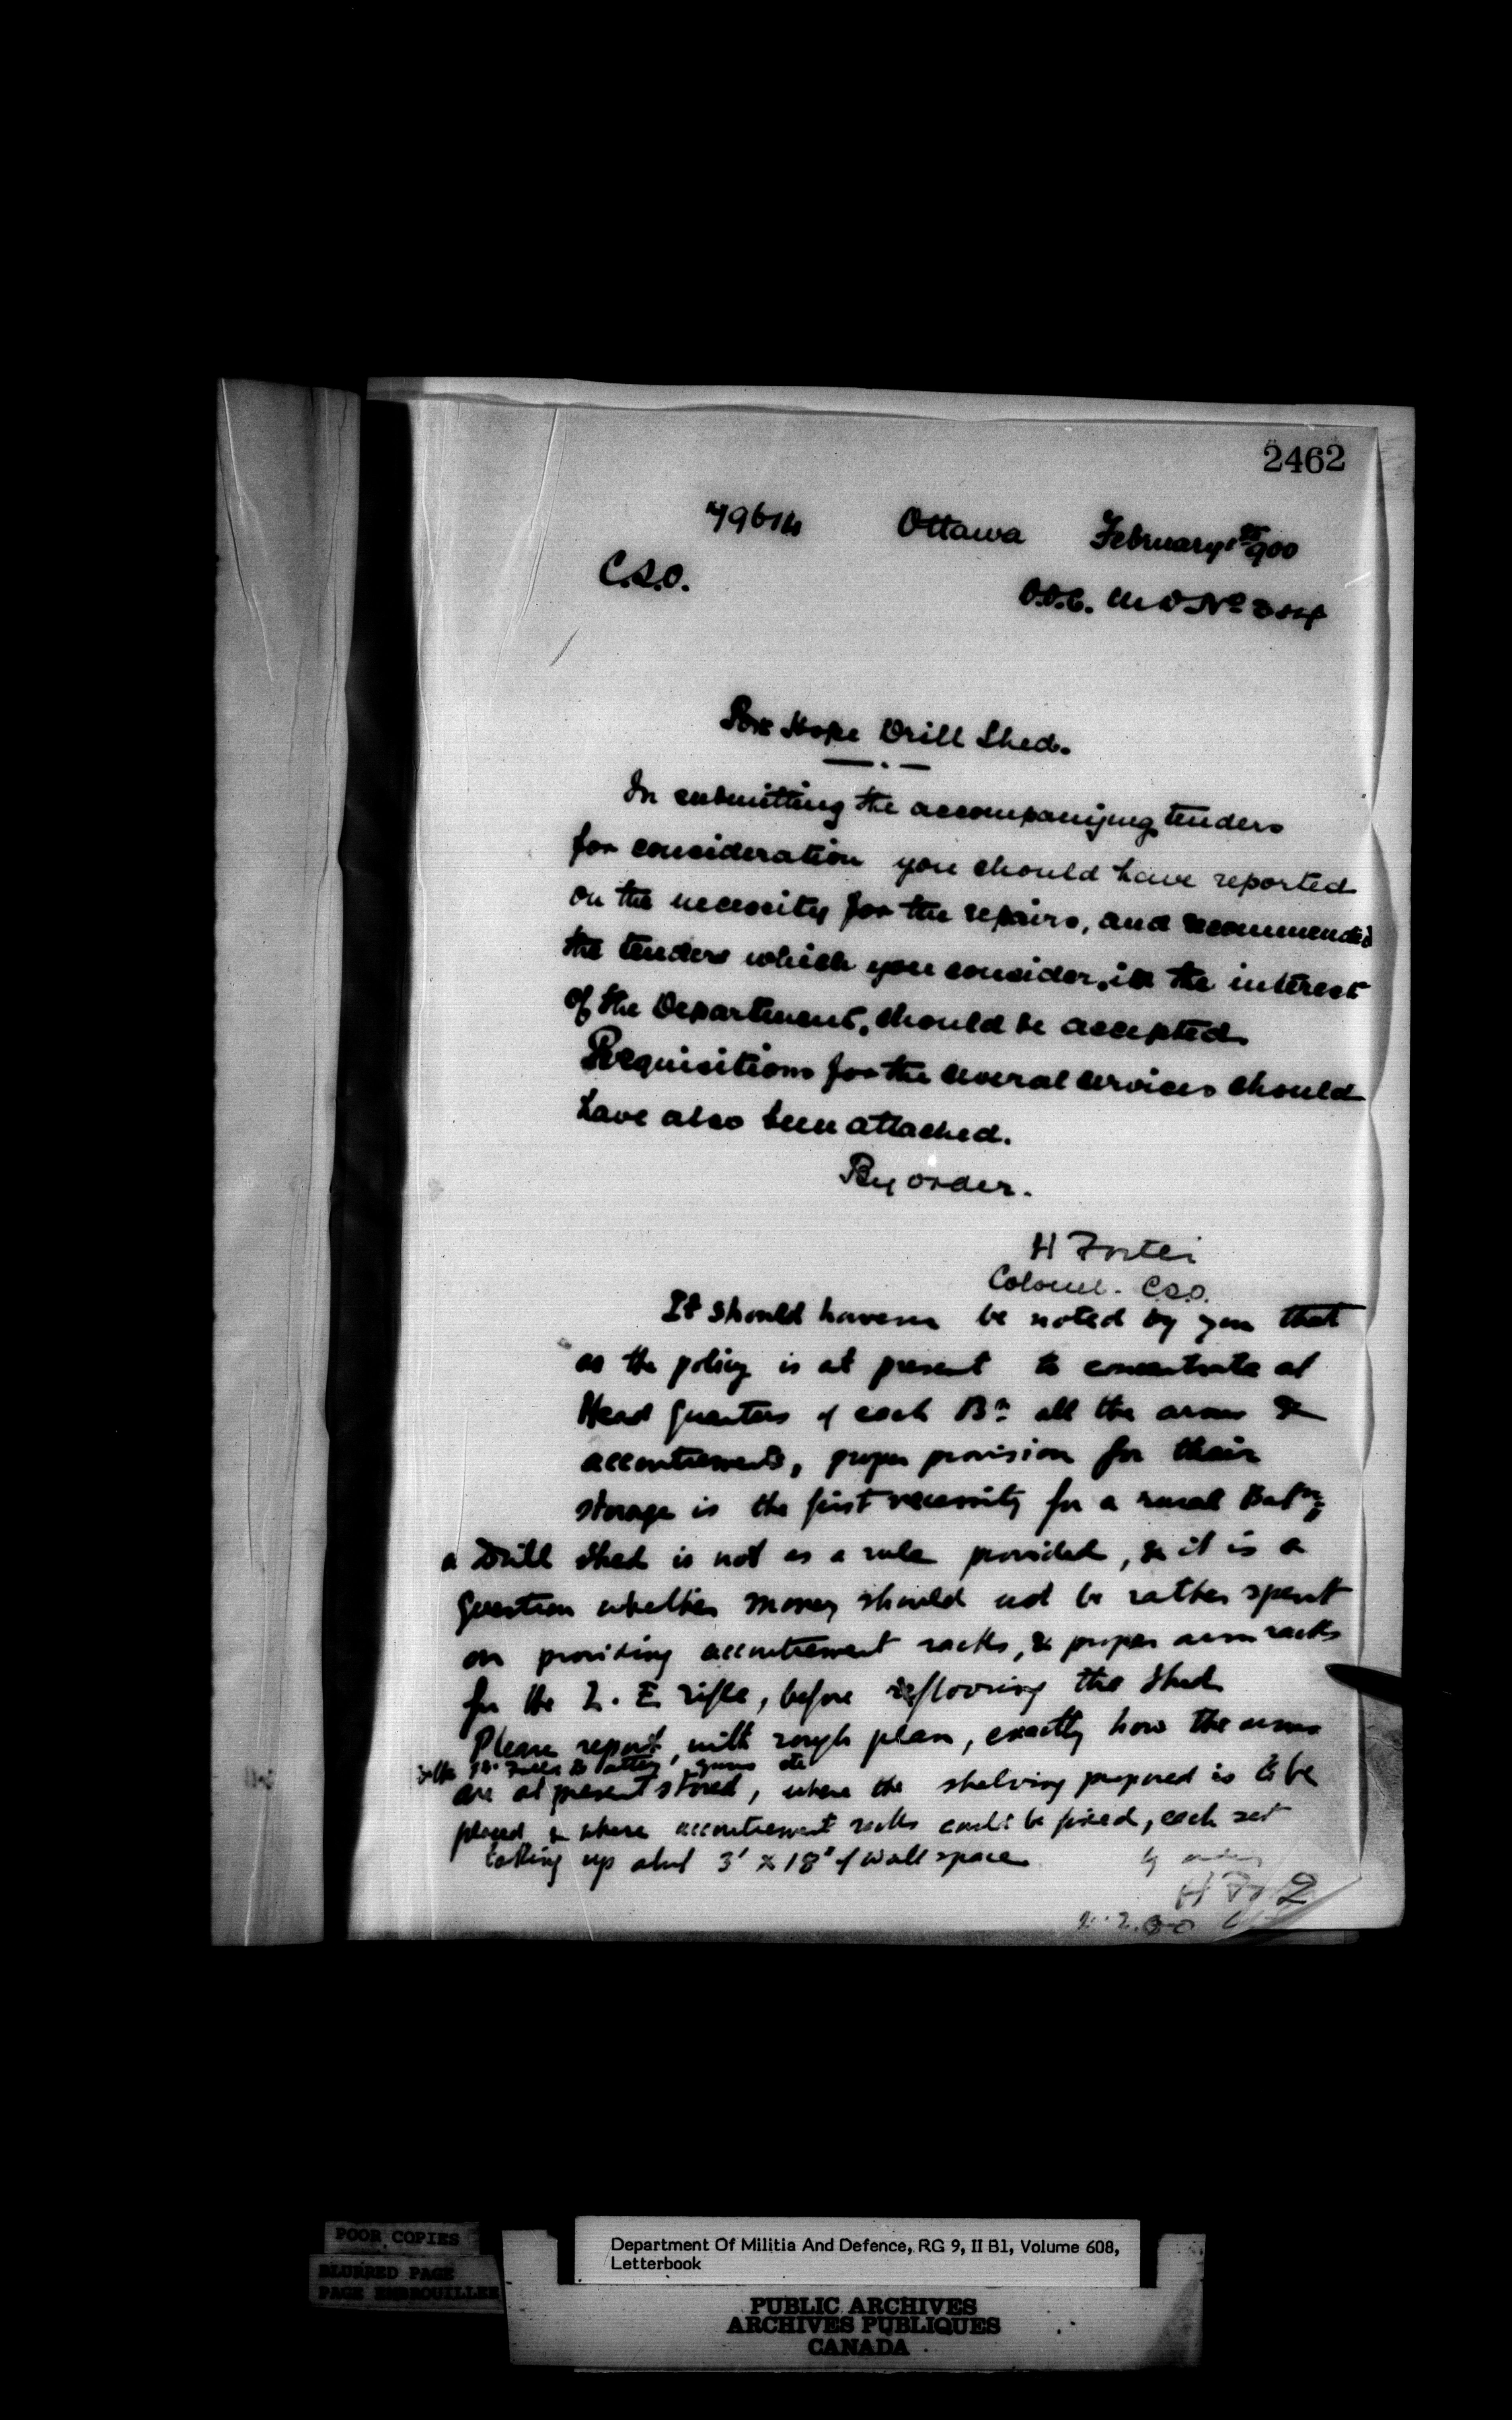 2462
79614 Ottawa February 1900
C.S.O.
D.O.C. M D No 3 & 4
Port Hope Drill Shed.
In submitting the accompanying tenders
for consideration you should have reported
on the necessity for the repairs, and recommended
the tenders which you consider, in the interest
of the Department, should be accepted.
Requisitions for the several services should
have also been attached.
By order.
H Foster
Colonel. C.S.O.
It should however be noted by you that
as the policy is at present to concentrate at
Head Quarters of each Bn all the arms &
accoutrements, proper provision for their
storage is the first necessity for a rural Batn;
a Drill Shed is not as a rule provided, & it is a
question whether money should not be rather spent
on providing accoutrement racks, & proper arm racks
for the L. E rifle, before reflooring the Shed
Please report, with rough plan, exactly how the arms
battery guns etc
are at present stored, where the shelving proposed is to be
placed & where accoutrement racks could be fixed, each set
taking up about 3' x 18" of wall space
by order
H
2.00
POOR COPIES
BLURRED PAGE
PAGE EMBROUILLEE
Department Of Militia And Defence, RG 9, II B1, Volume 608,
Letterbook
PUBLIC ARCHIVES
ARCHIVES PUBLIQUES
CANADA